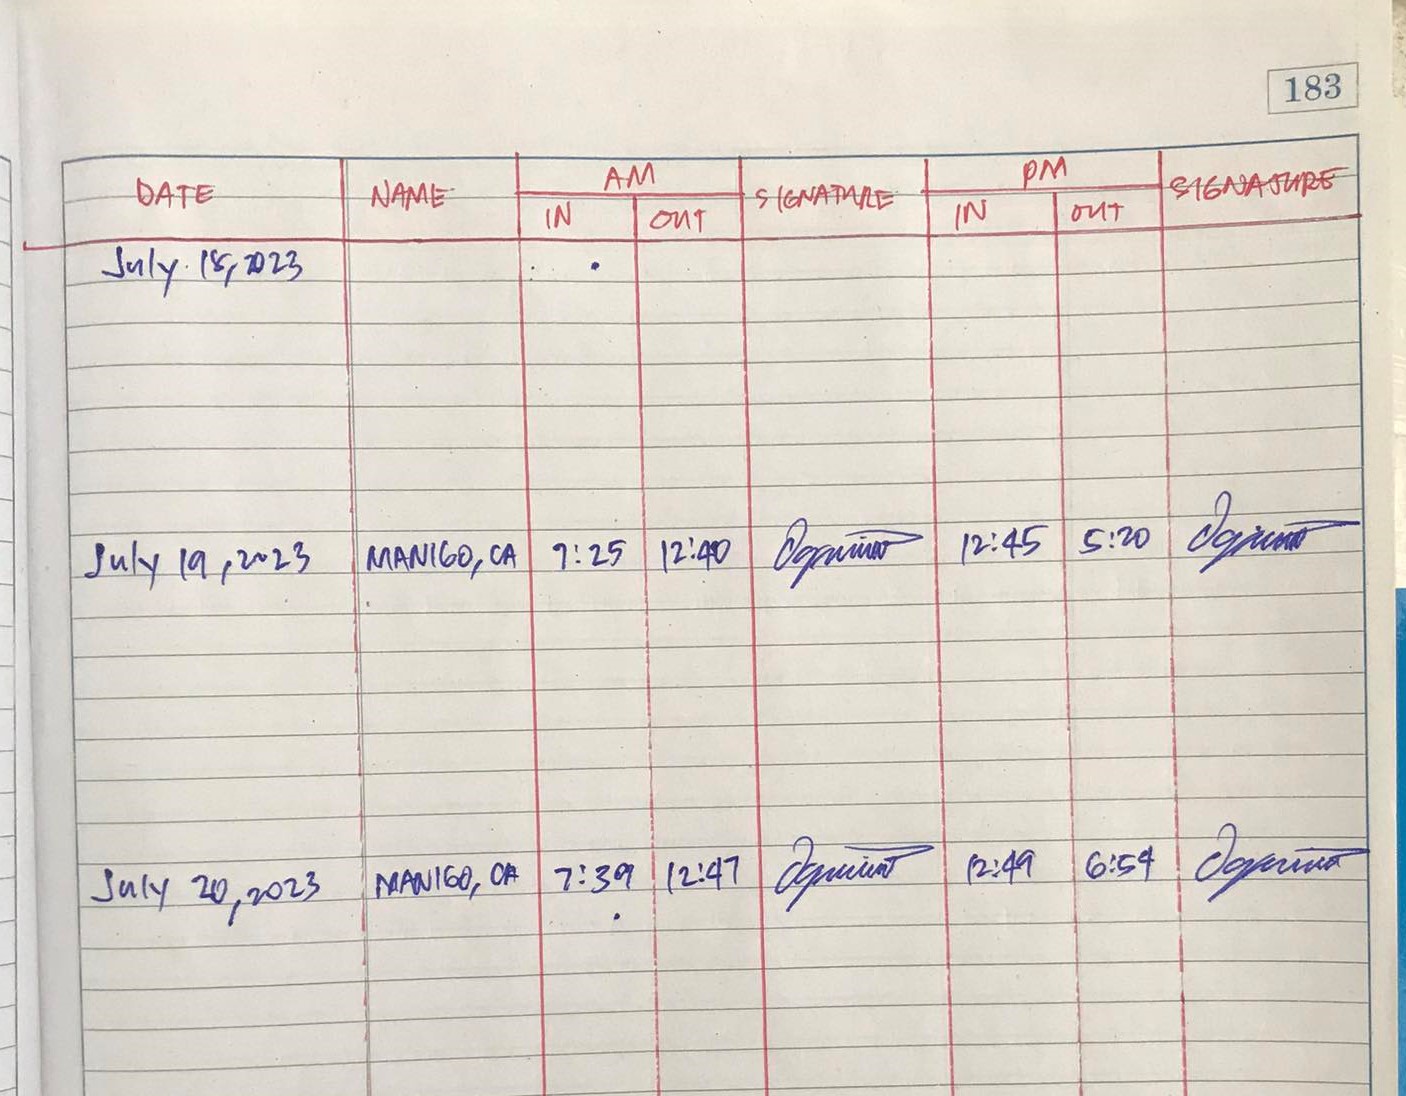 183
DATE NAME AM SIGNATURE PM SIGNATURE
IN OUT IN OUT
July 18, 2023
July 19, 2023 MANIGO, CA 7:25 12:40 12:45 5:20
July 20, 2023 MANIGO, CA 7:39 12:47 12:49 6:54